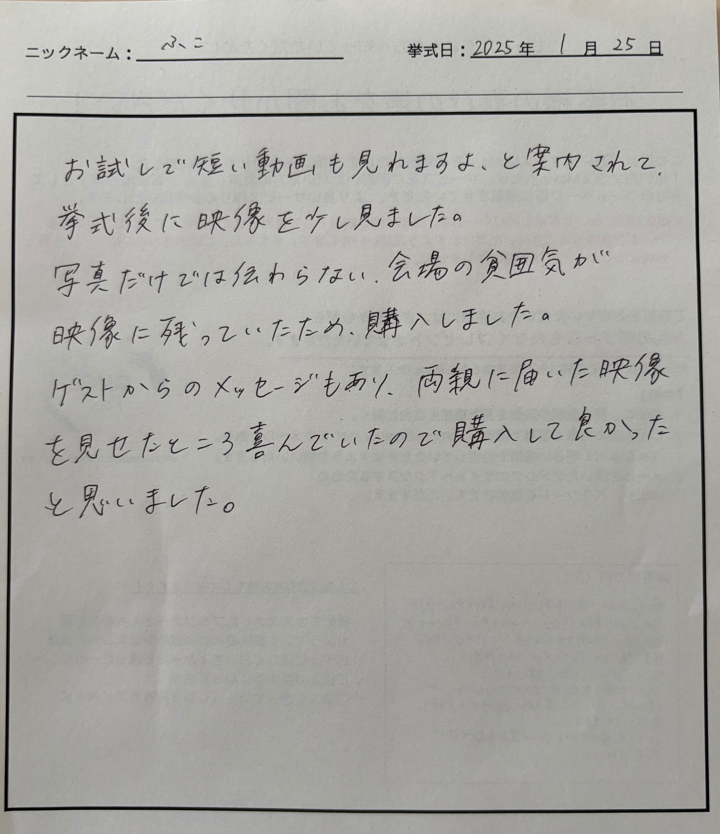 ニックネーム： ふこ 挙式日：2025年 1月 25日
お試しで短い動画も見れますよ、と案内されて、
挙式後に映像を少し見ました。
写真だけでは伝わらない、会場の雰囲気が
映像に残っていたため、購入しました。
ゲストからのメッセージもあり、両親に届いた映像
を見せたところ喜んでいたので購入して良かった
と思いました。